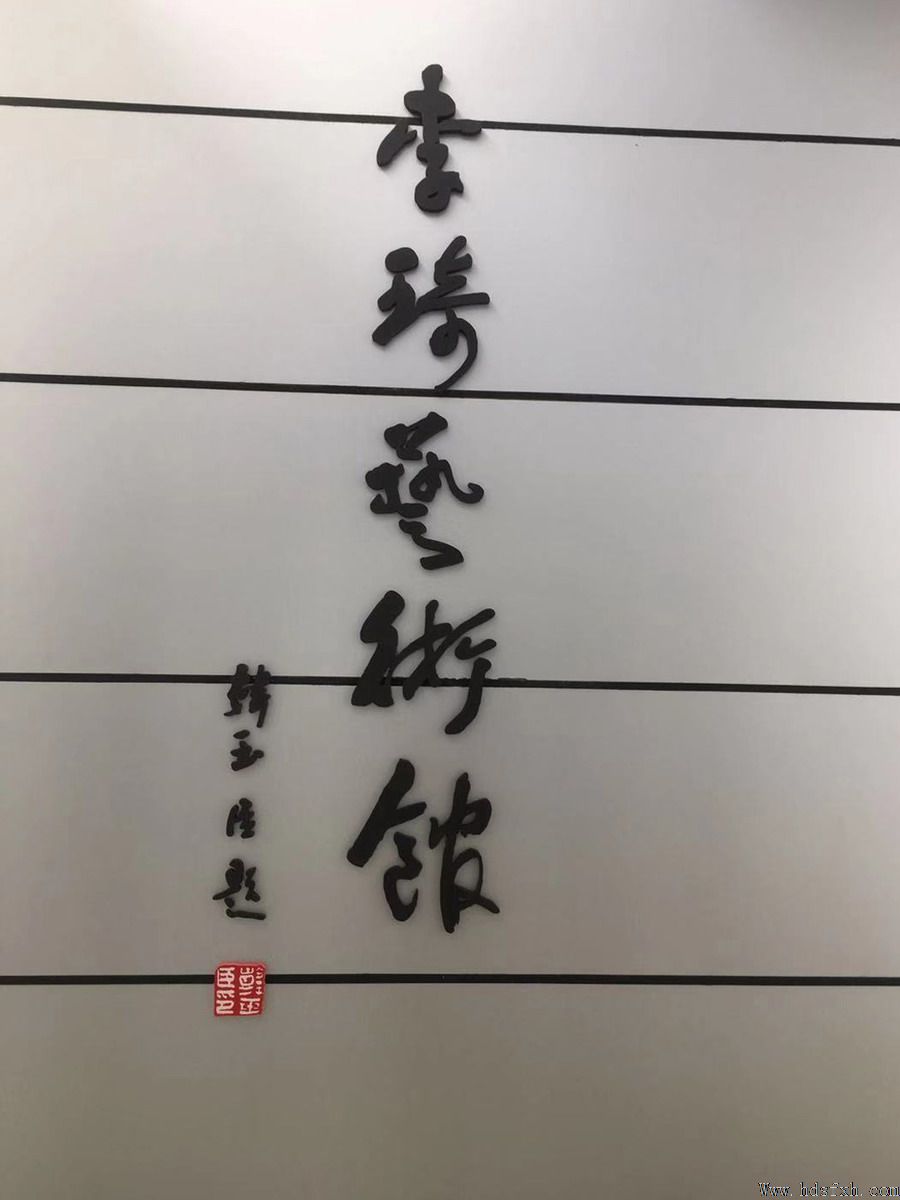 李琦藝術館
韓玉臣題
Www.hdsfxh.com